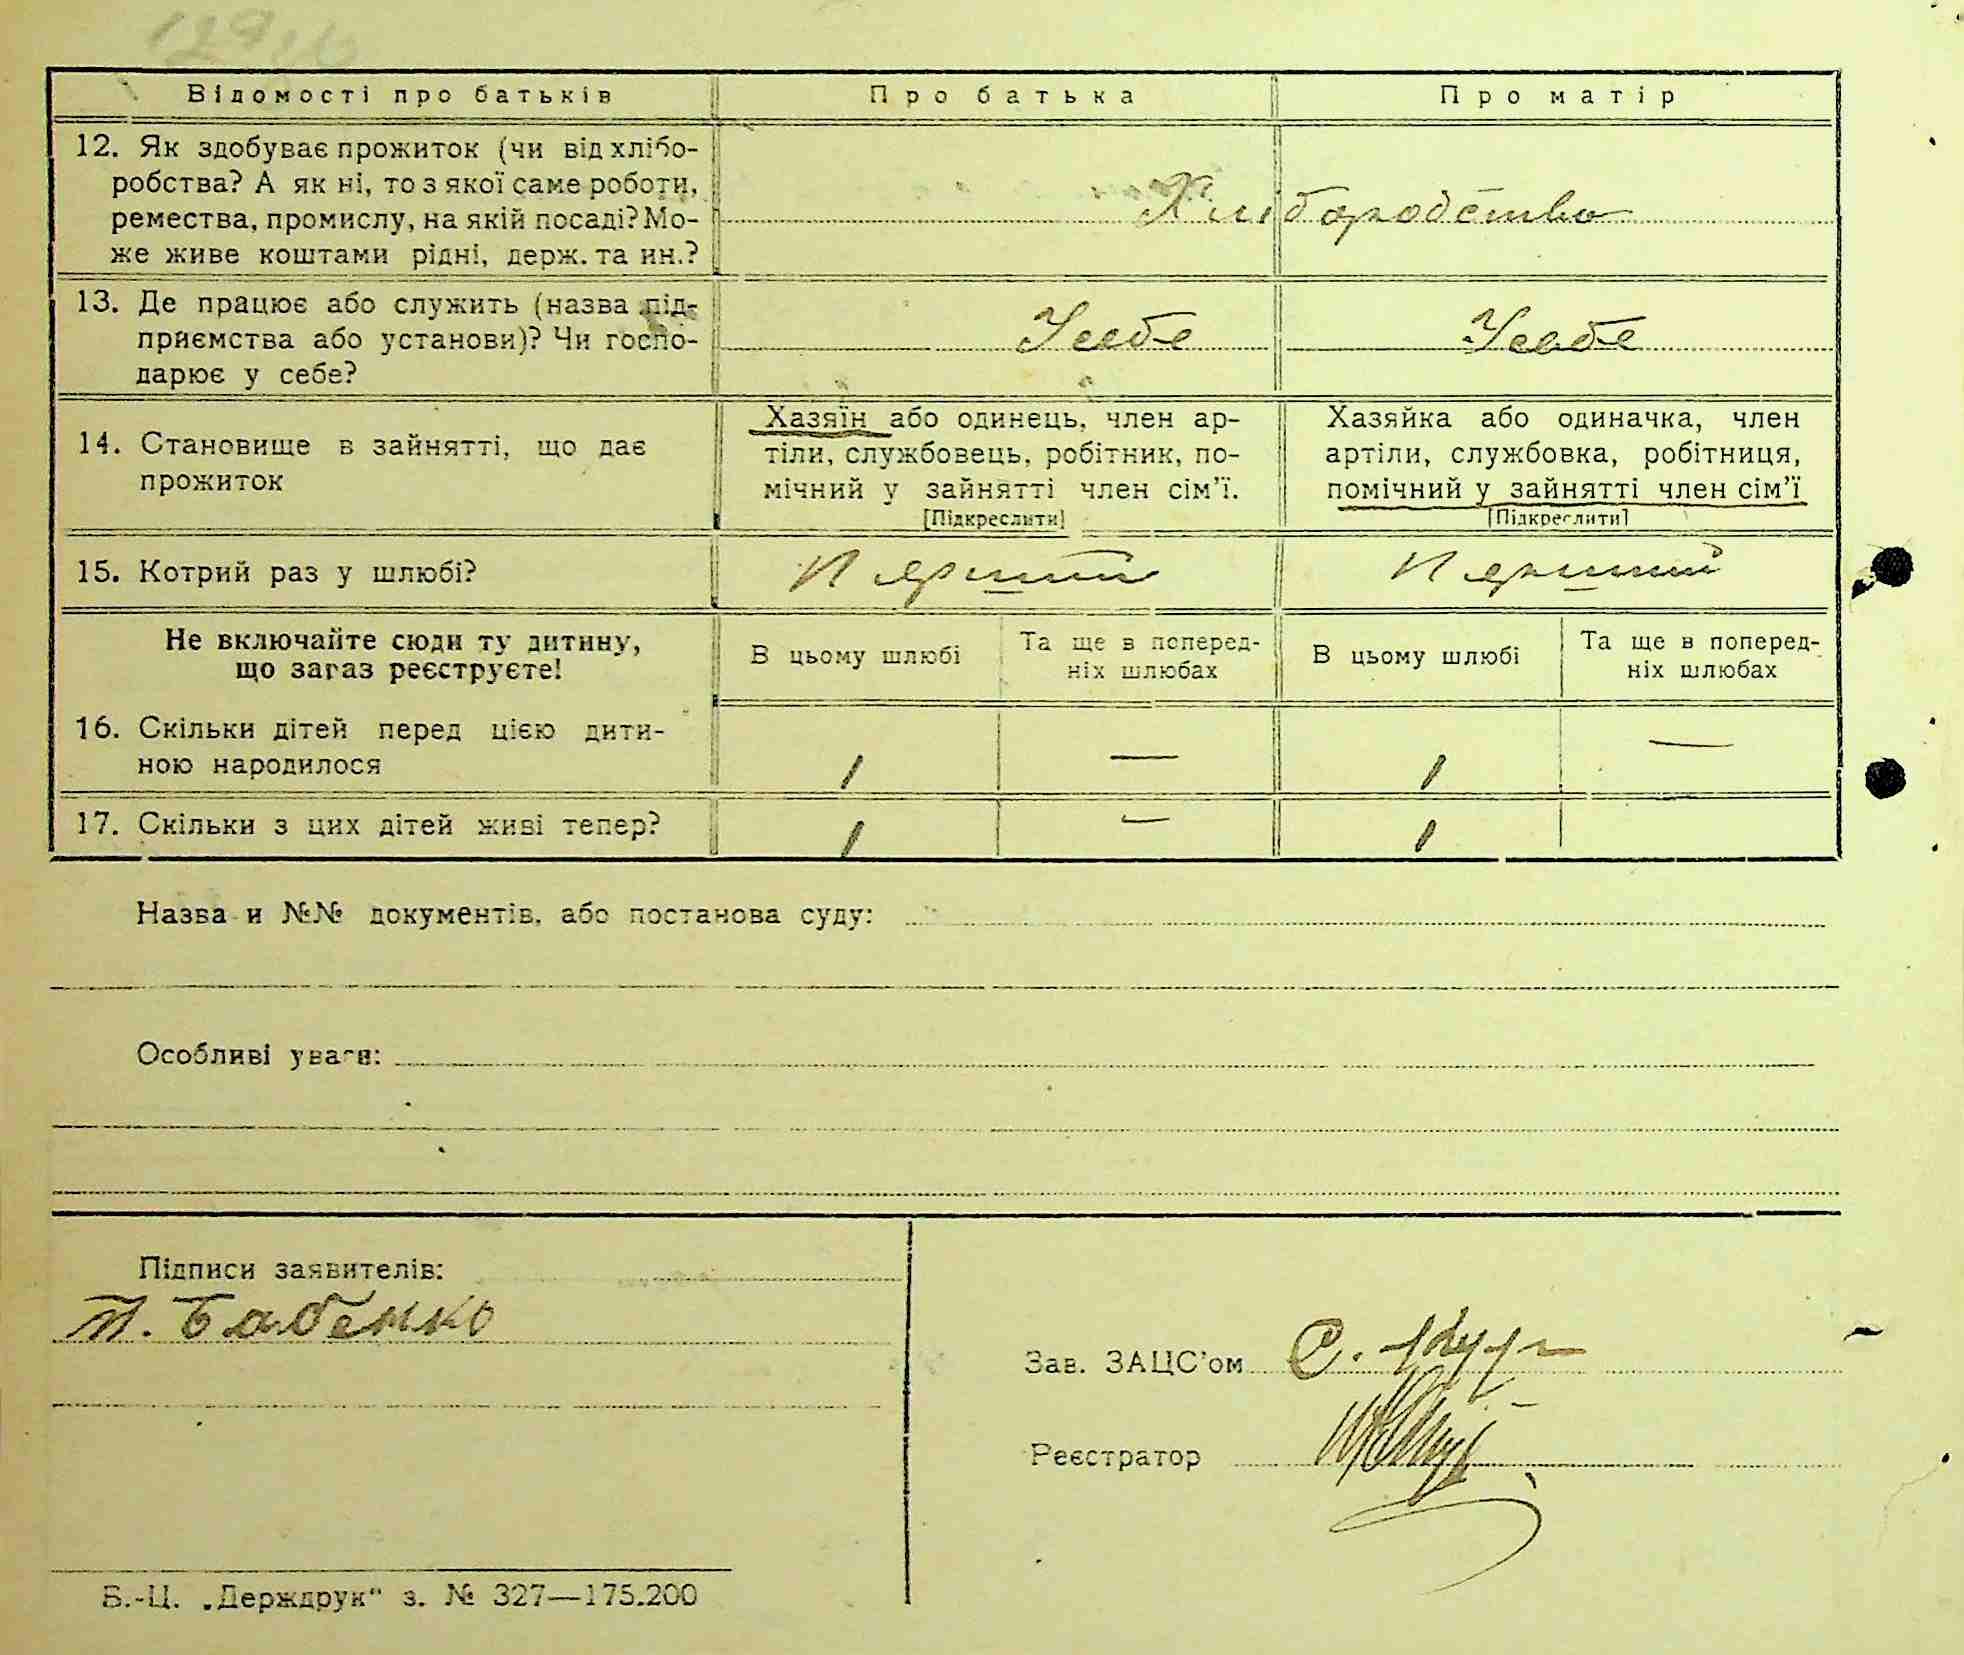 Відомості про батьків
Про батька
Про матір
12. Як здобуває прожиток (чи від хлібо-
робства? А як ні, то з якої саме роботи,
ремества, промислу, на якій посаді? Мо-
же живе коштами рідні, держ. та ин.?
Хліборобство
13. Де працює або служить (назва під-
приємства або установи)? Чи госпо-
дарює у себе?
У себе
У себе
14. Становище в зайнятті, що дає
прожиток
Хазяїн або одинець, член ар-
тіли, службовець, робітник, по-
мічний у зайнятті член сім’ї.
[Підкреслити]
Хазяйка або одиначка, член
артіли, службовка, робітниця,
помічний у зайнятті член сім’ї
[Підкреслити]
15. Котрий раз у шлюбі?
Перший
Перший
Не включайте сюди ту дитину,
що зараз реєструєте!
В цьому шлюбі
Та ще в поперед-
ніх шлюбах
В цьому шлюбі
Та ще в поперед-
ніх шлюбах
16. Скільки дітей перед цією дити-
ною народилося
1
—
1
—
17. Скільки з цих дітей живі тепер?
1
—
1
Назва и №№ документів, або постанова суду:
Особливі уваги:
Підписи заявителів:
П. Бабенко
Зав. ЗАЦС’ом С.
Реєстратор
Б.-Ц. „Держдрук“ з. № 327—175.200